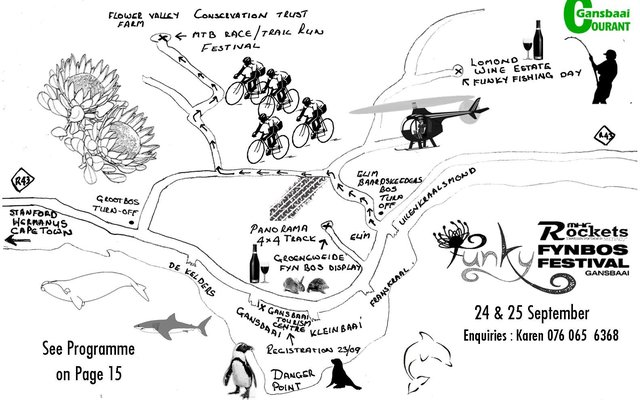 Gansbaai
COURANT
FLOWER VALLEY CONSERVATION TRUST
FARM
MTB RACE/TRAIL RUN
FESTIVAL
LOMOND
WINE ESTATE
FUNKY FISHING DAY
R43
R43
STANFORD
HERMANUS
CAPE TOWN
GROOTBOS
TURN-OFF
ELIM
BAARDSKEEDERS
BOS
TURN
OFF
UILENKRAALSMOND
PANORAMA
4x4 TRACK
ELIM
GROENEWEIDE
FYNBOS DISPLAY
DE KELDERS
FRANSKRAAL
X GANSBAAI
TOURISM
CENTRE
GANSBAAI
KLEINBAAI
REGISTRATION 23/09
DANGER
POINT
Funky
Rockets
FYNBOS
FESTIVAL
GANSBAAI
24 & 25 September
Enquiries : Karen 076 065 6368
See Programme
on Page 15